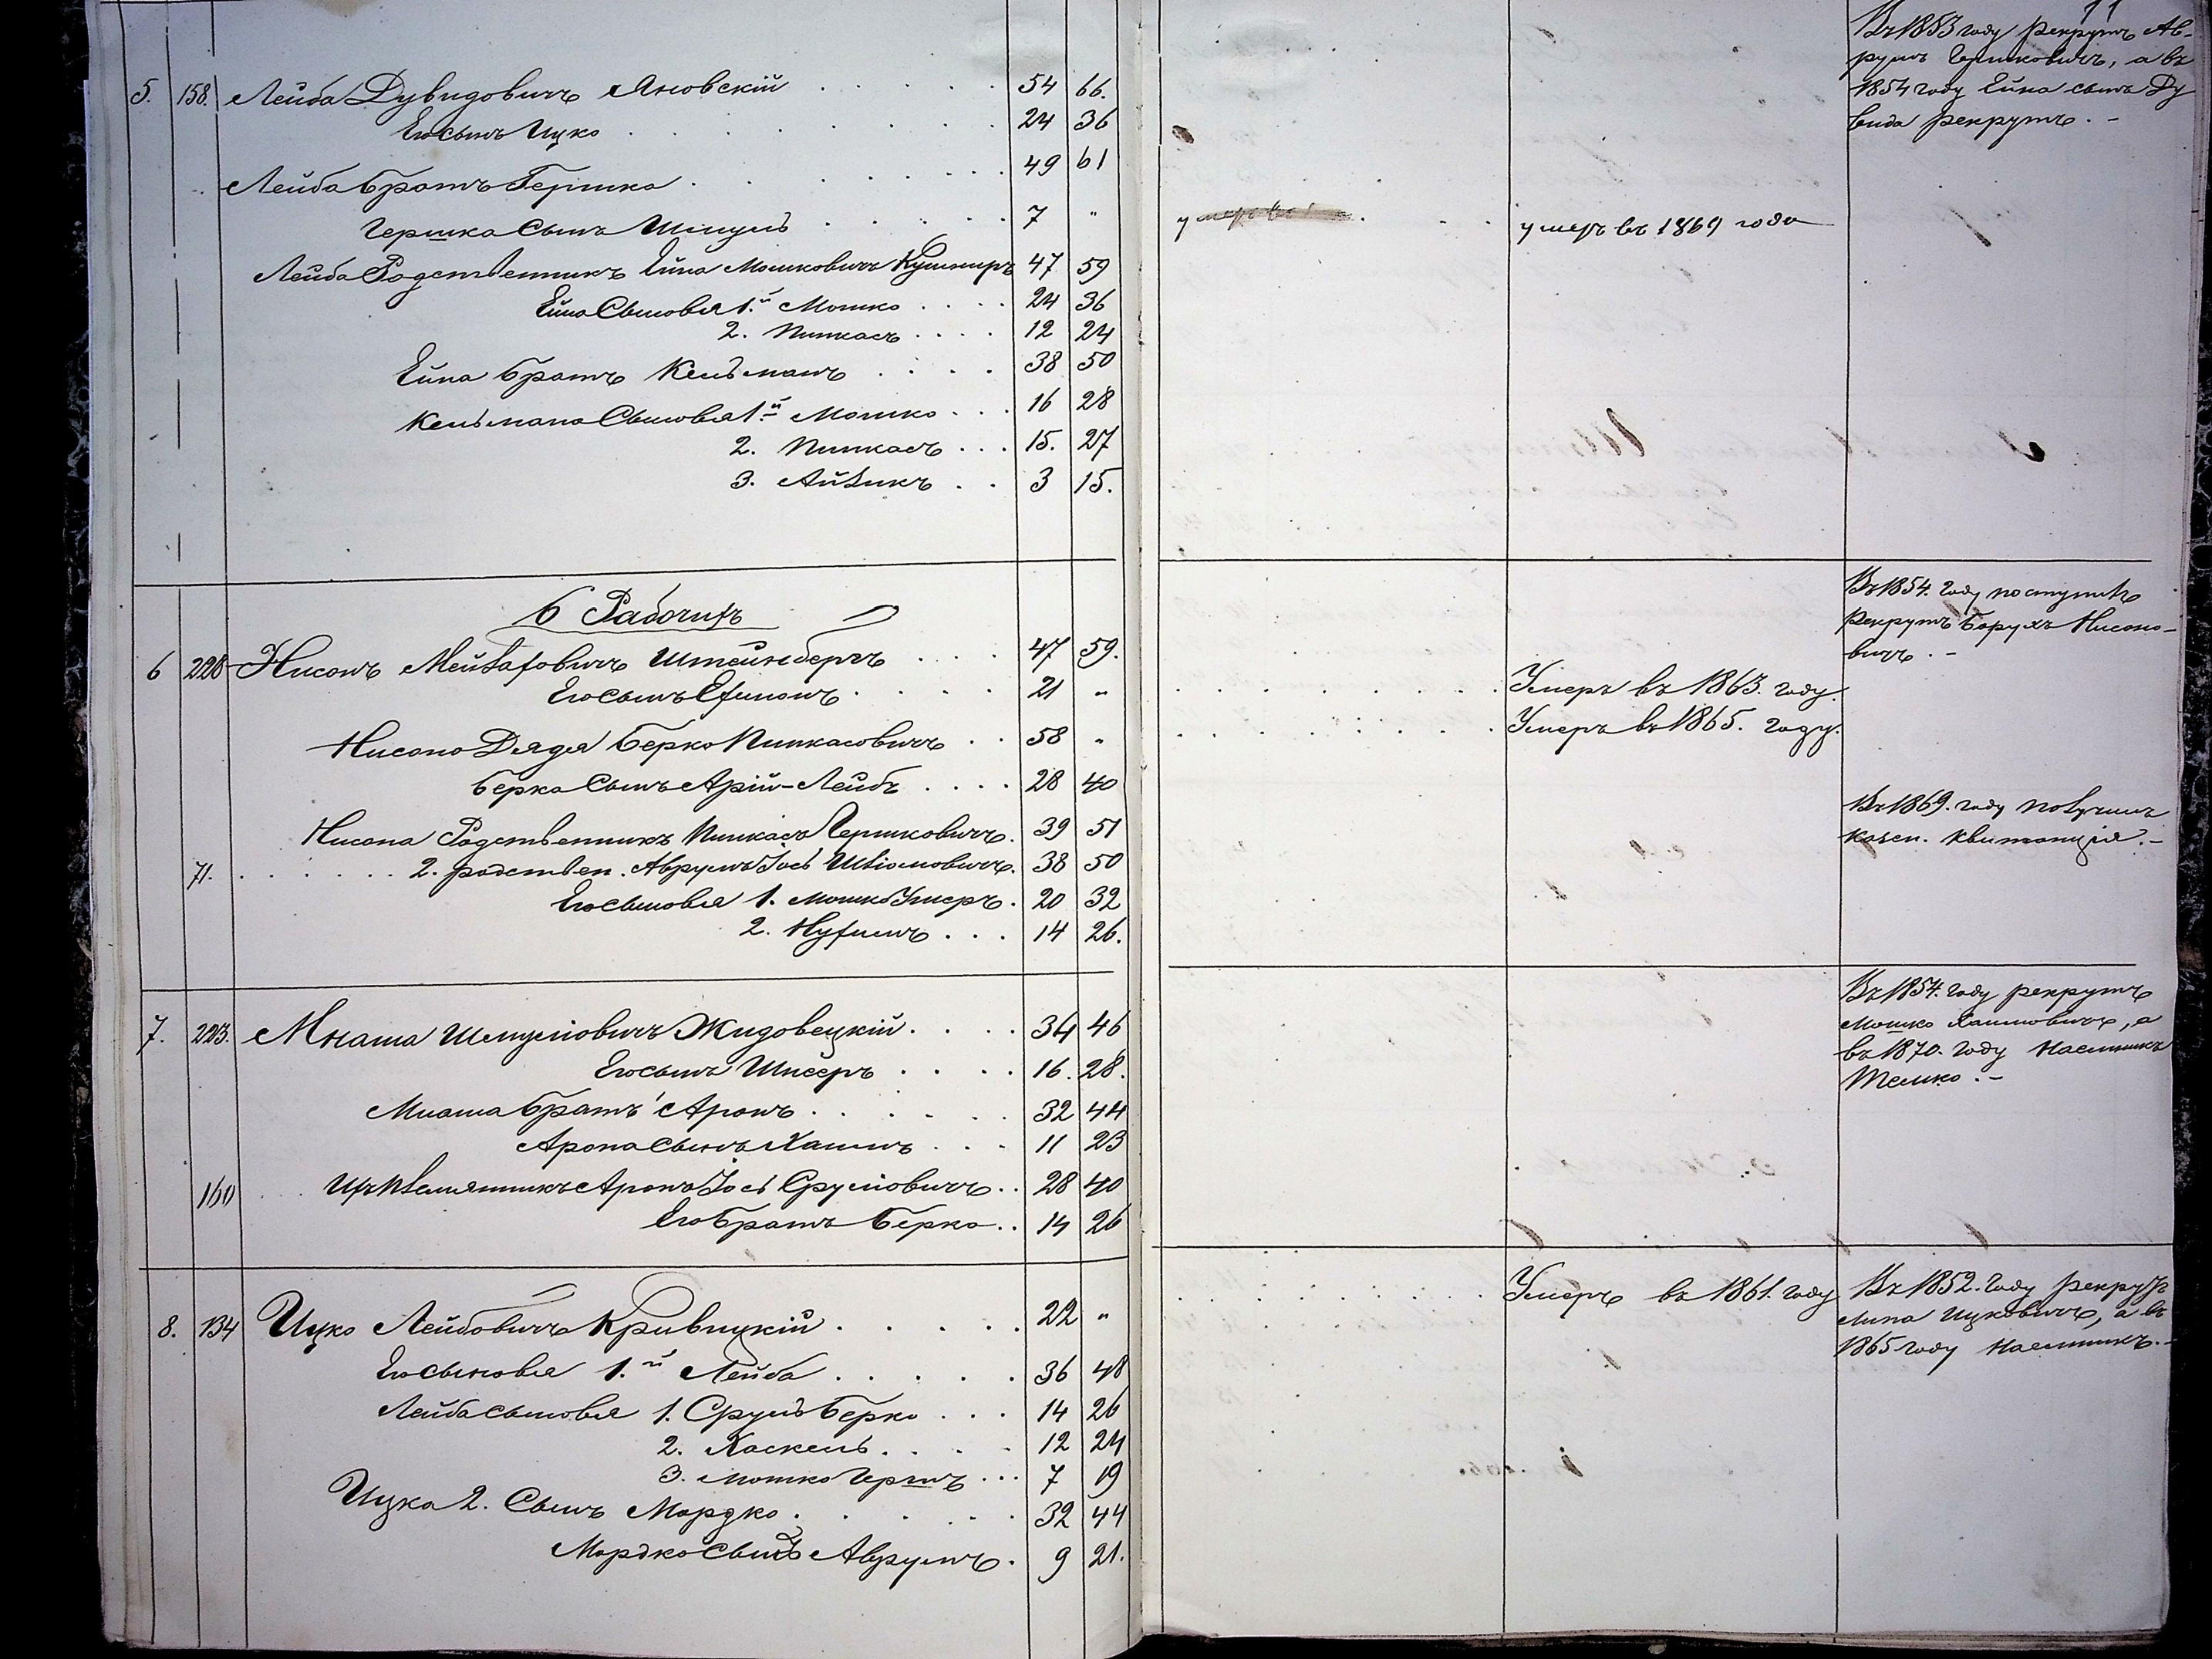 11
5. 158. Лейба Дувидовичъ Яновскій 54 66.
Его сынъ Ицко 24 36
Лейба братъ Гершка 49 61
Гершка сынъ Шмуль 7 " умеръ въ 1869 года
Лейба Родственникъ Ейна Мошковичъ Кушниръ 47 59
Ейна Сыновья 1.й Мошко 24 36
2. Пинкасъ 12 24
Ейна братъ Кельманъ 38 50
Кельмана Сыновья 1.й Мошко 16 28
2. Пинкасъ 15. 27
3. Айзикъ 3 15.
Въ 1853 году рекрутъ Ав-
румъ Гершковичъ, а въ
1854 году Ейна сынъ Ду
вида рекрутъ. -
6 Рабочихъ
6 220 Нисонъ Мейзаховичъ Штейнбергъ 47 59.
Его сынъ Ехимонъ 21 " Умеръ въ 1863. году.
Нисона Дядя Берко Пинкасовичъ 58 " Умеръ въ 1865. году.
Берка Сынъ Арій-Лейбъ 28 40
Нисона Родственникъ Пинкасъ Гершковичъ. 39 51
71. 2. родствен. Аврумъ Іось Шліомовичъ. 38 50
Его сыновья 1. Мошко Умеръ. 20 32
2. Нухимъ 14 26.
Въ 1854. году поступилъ
Рекрутъ Борухъ Нисоно-
вичъ. -
Въ 1869. году получили
казен. квитанція. -
7. 223. Мнаша Шмуліовичъ Жидовецкій 34 46
Его сынъ Шнееръ 16. 28.
Мнаша братъ Аронъ 32 44
Арона Сынъ Хаимъ 11 23
160 Ихъ племянникъ Аронъ Іось Сруліовичъ 28 40
Его братъ Берко 14 26
Въ 1854. году рекрутъ
Мошко Хаимовичъ, а
въ 1870. году Наемникъ
Темко. -
8. 134 Ицко Лейбовичъ Кривицкій 22 " Умеръ въ 1861. году
Его сыновья 1.й Лейба 36 48
Лейба сыновья 1. Сруль Берко 14 26
2. Хаскель 12 24
3. Мошко Гершъ 7 19
Ицка 2. Сынъ Мордко 32 44
Мордко Сынъ Аврумъ 9 21.
Въ 1852. году рекрутъ
Липа Ицковичъ, а въ
1865 году Наемникъ. -